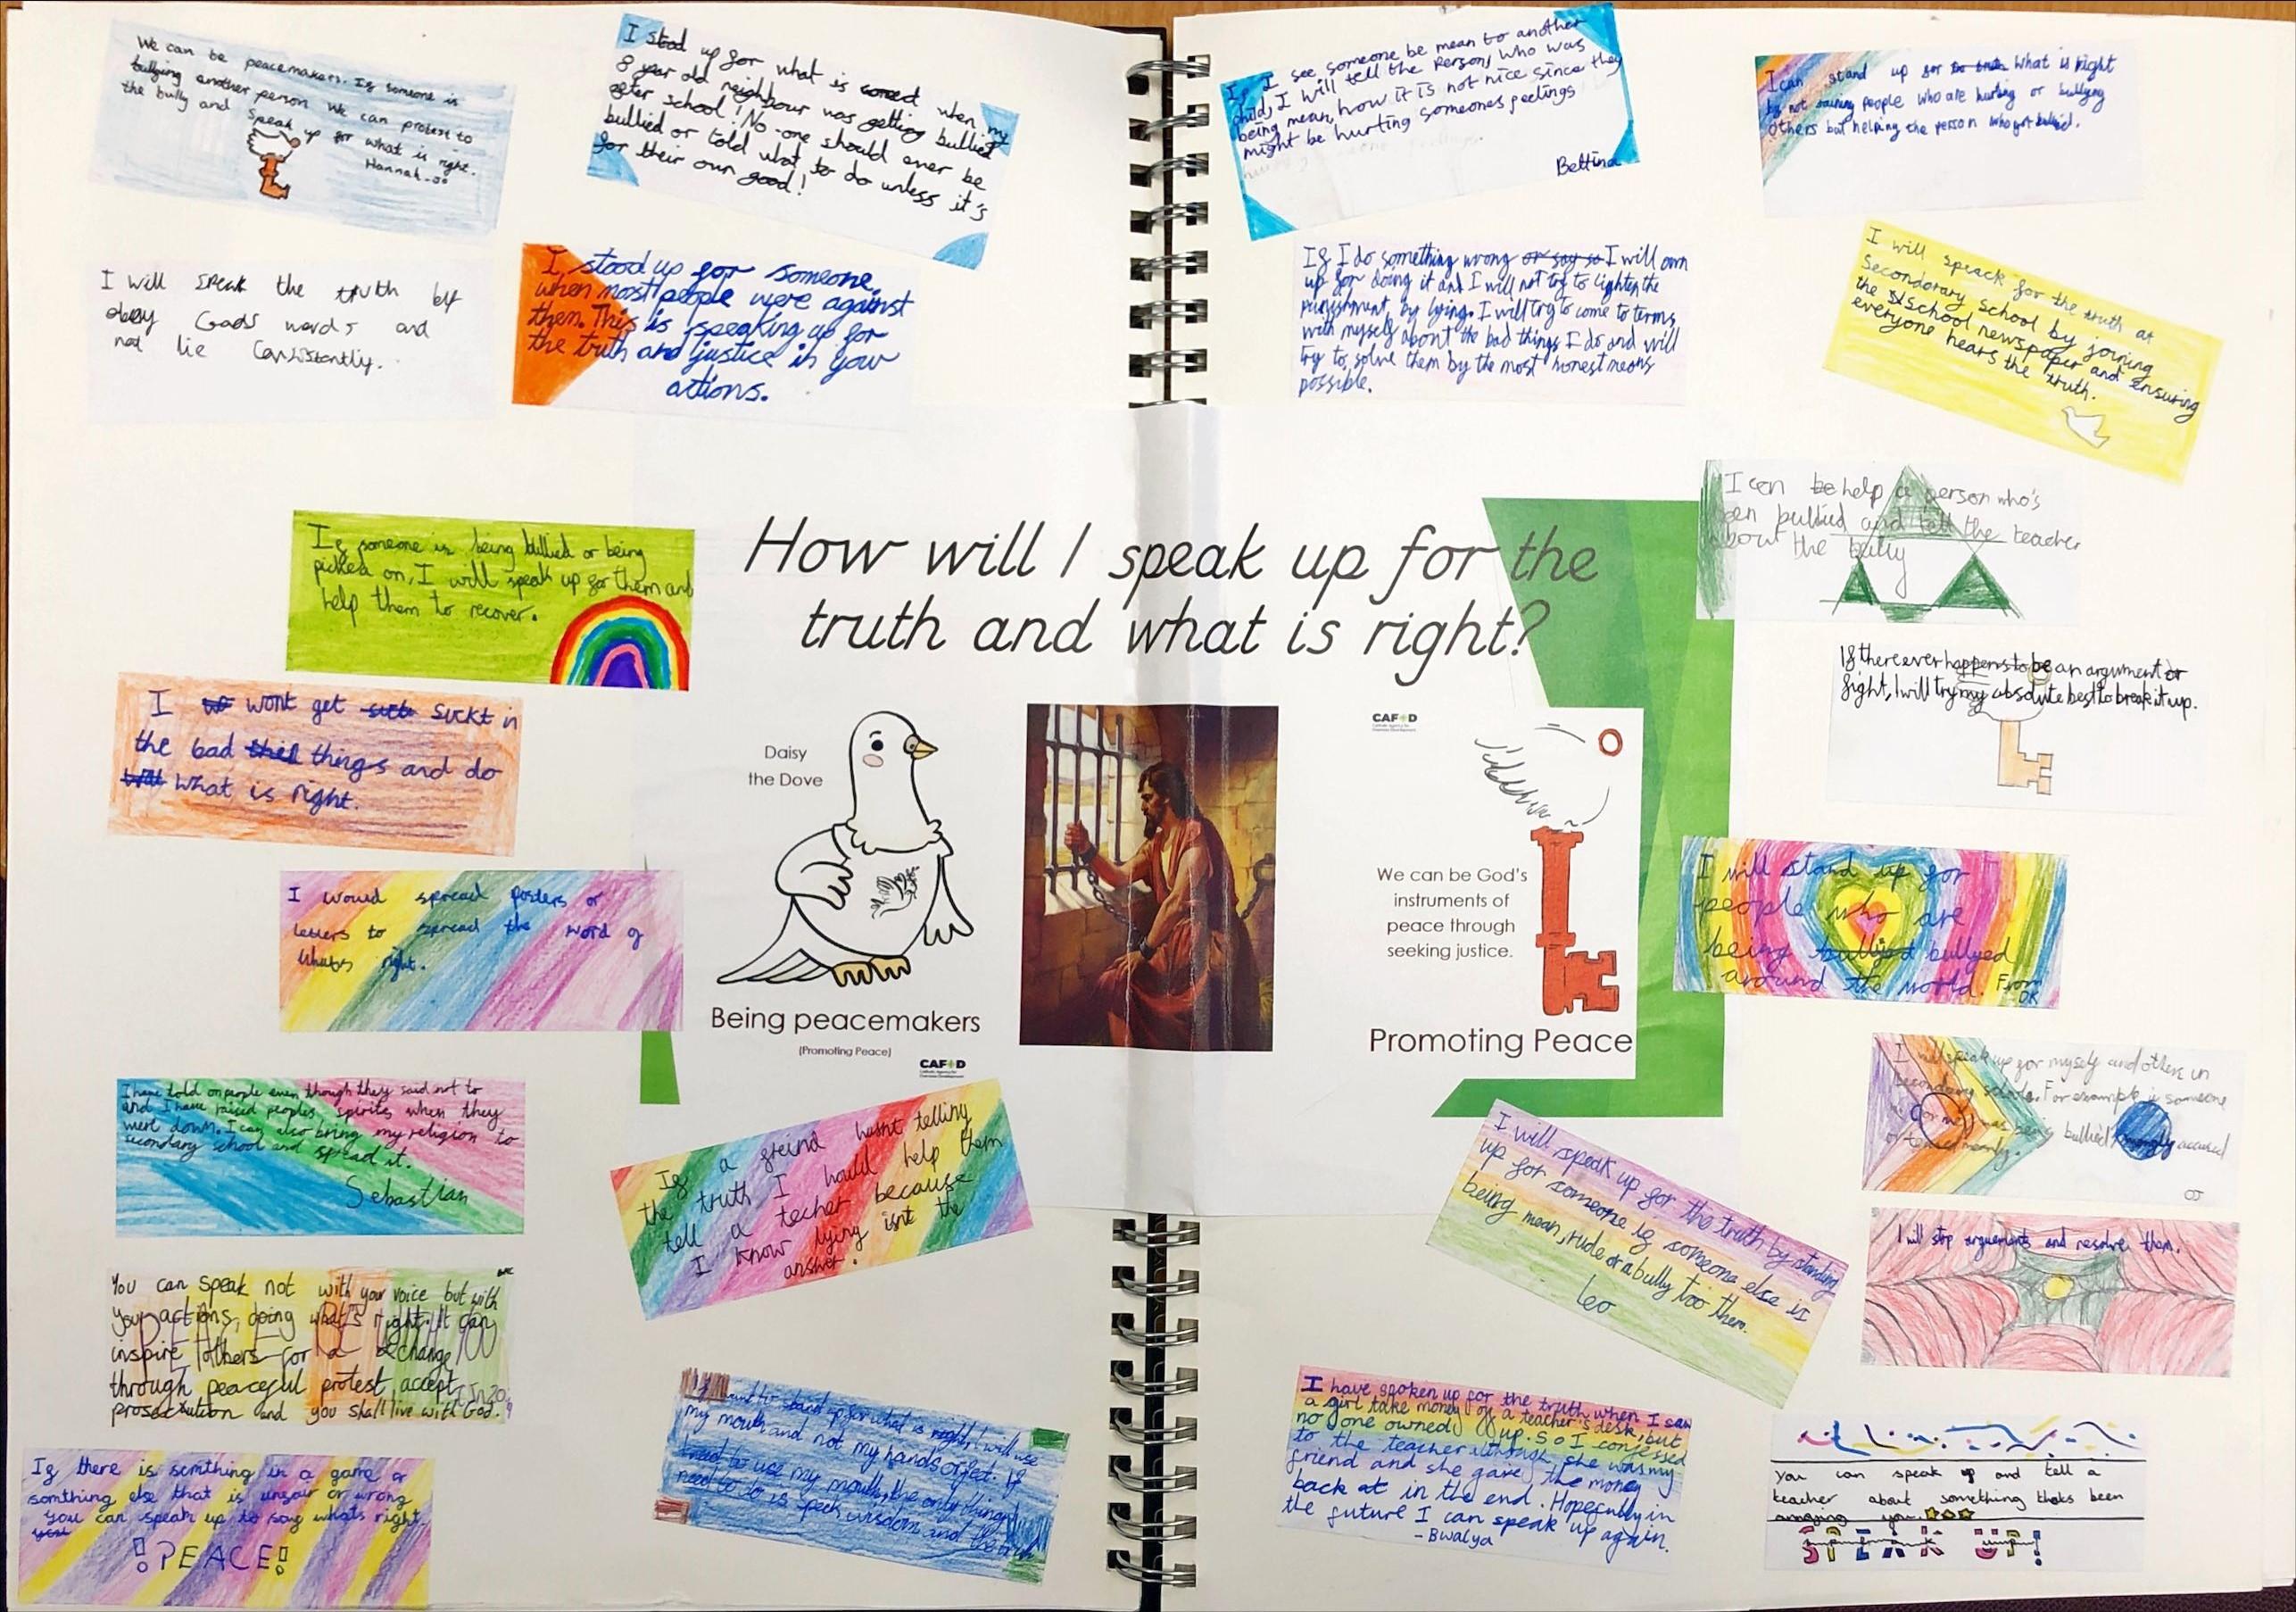 We can be peacemakers. If someone is
bullying another person we can protest to
the bully and speak up for what is right.
Hannah
I stood up for what is correct when my
8 year old neighbour was getting bullied
after school! No-one should ever be
bullied or told what to do unless it's
for their own good!
I will speak the truth by
obey Gods words and
not lie consistantly.
I stood up for someone,
when most people were against
them. This is speaking up for
the truth and justice in your
actions.
If I see someone be mean to another
child, I will tell the person, who was
being mean, how it is not nice since they
might be hurting someones feelings
Bettina
I can stand up for what is right
by not joining people who are hurting or bullying
others but helping the person who got bullied.
If I do something wrong or say so I will own
up for doing it and I will not try to lighten the
punishment by lying. I will try to come to terms
with myself about the bad things I do and will
try to solve them by the most honest means
possible.
I will speack for the truth at
Secondorary school by joining
the School newspaper and ensuring
everyone hears the truth.
If someone is being bullied or being
picked on, I will speak up for them and
help them to recover.
How will I speak up for the
truth and what is right?
I can help a person who's
been bullied and tell the teacher
about the bully
I wont get suckt in
the bad things and do
what is right.
If there ever happens to be an argument or
fight, I will try my absolute best to break it up.
Daisy
the Dove
Being peacemakers
(Promoting Peace)
CAFOD
Catholic Agency for
Overseas Development
CAFOD
Catholic Agency for
Overseas Development
We can be God's
instruments of
peace through
seeking justice.
Promoting Peace
I would spread posters or
letters to spread the word of
whats right.
I will stand up for
people who are
being bullyed bullyed
around the world. From
DK
I have told on people even though they said not to
and I have raised peoples spirits when they
were down. I can also bring my religion to
secondary school and spread it.
Sebastian
If a freind wasnt telling
the truth I would help them
tell a techer because
I know lying isnt the
answer.
I will speak up for myself and others in
Secondary schools. For example if someone
(or me) was being bullied, wrongly accused
or teased meanly.
OJ
I will speak up for the truth by standing
up for someone if someone else is
being mean, rude or a bully too them.
Leo
I will stop arguements and resolve them.
You can speak not with your voice but with
your actions, doing what's right. It can
inspire others for a change
through peaceful protest, accept
prosecution and you shall live with God.
want to stand up for what is right, I will use
my mouth and not my hands or feet. If
I need to use my mouth, the only thing I
need to do is speek wisdom and the truth
I have spoken up for the truth when I saw
a girl take money of a teacher's desk, but
no one owned up. So I confessed
to the teacher although she was my
friend and she gave the money
back at in the end. Hopefully in
the future I can speak up again.
- Bwalya
If there is somthing in a game or
somthing else that is unfair or wrong
you can speak up to say whats right.
!PEACE!
You can speak up and tell a
teacher about something thats been
annoying you.
SPEAK UP!